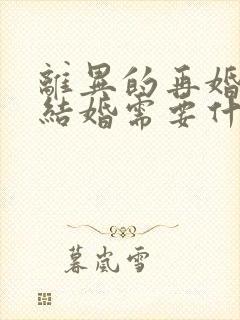 離異的再婚
結婚需要什
暮嵐雪